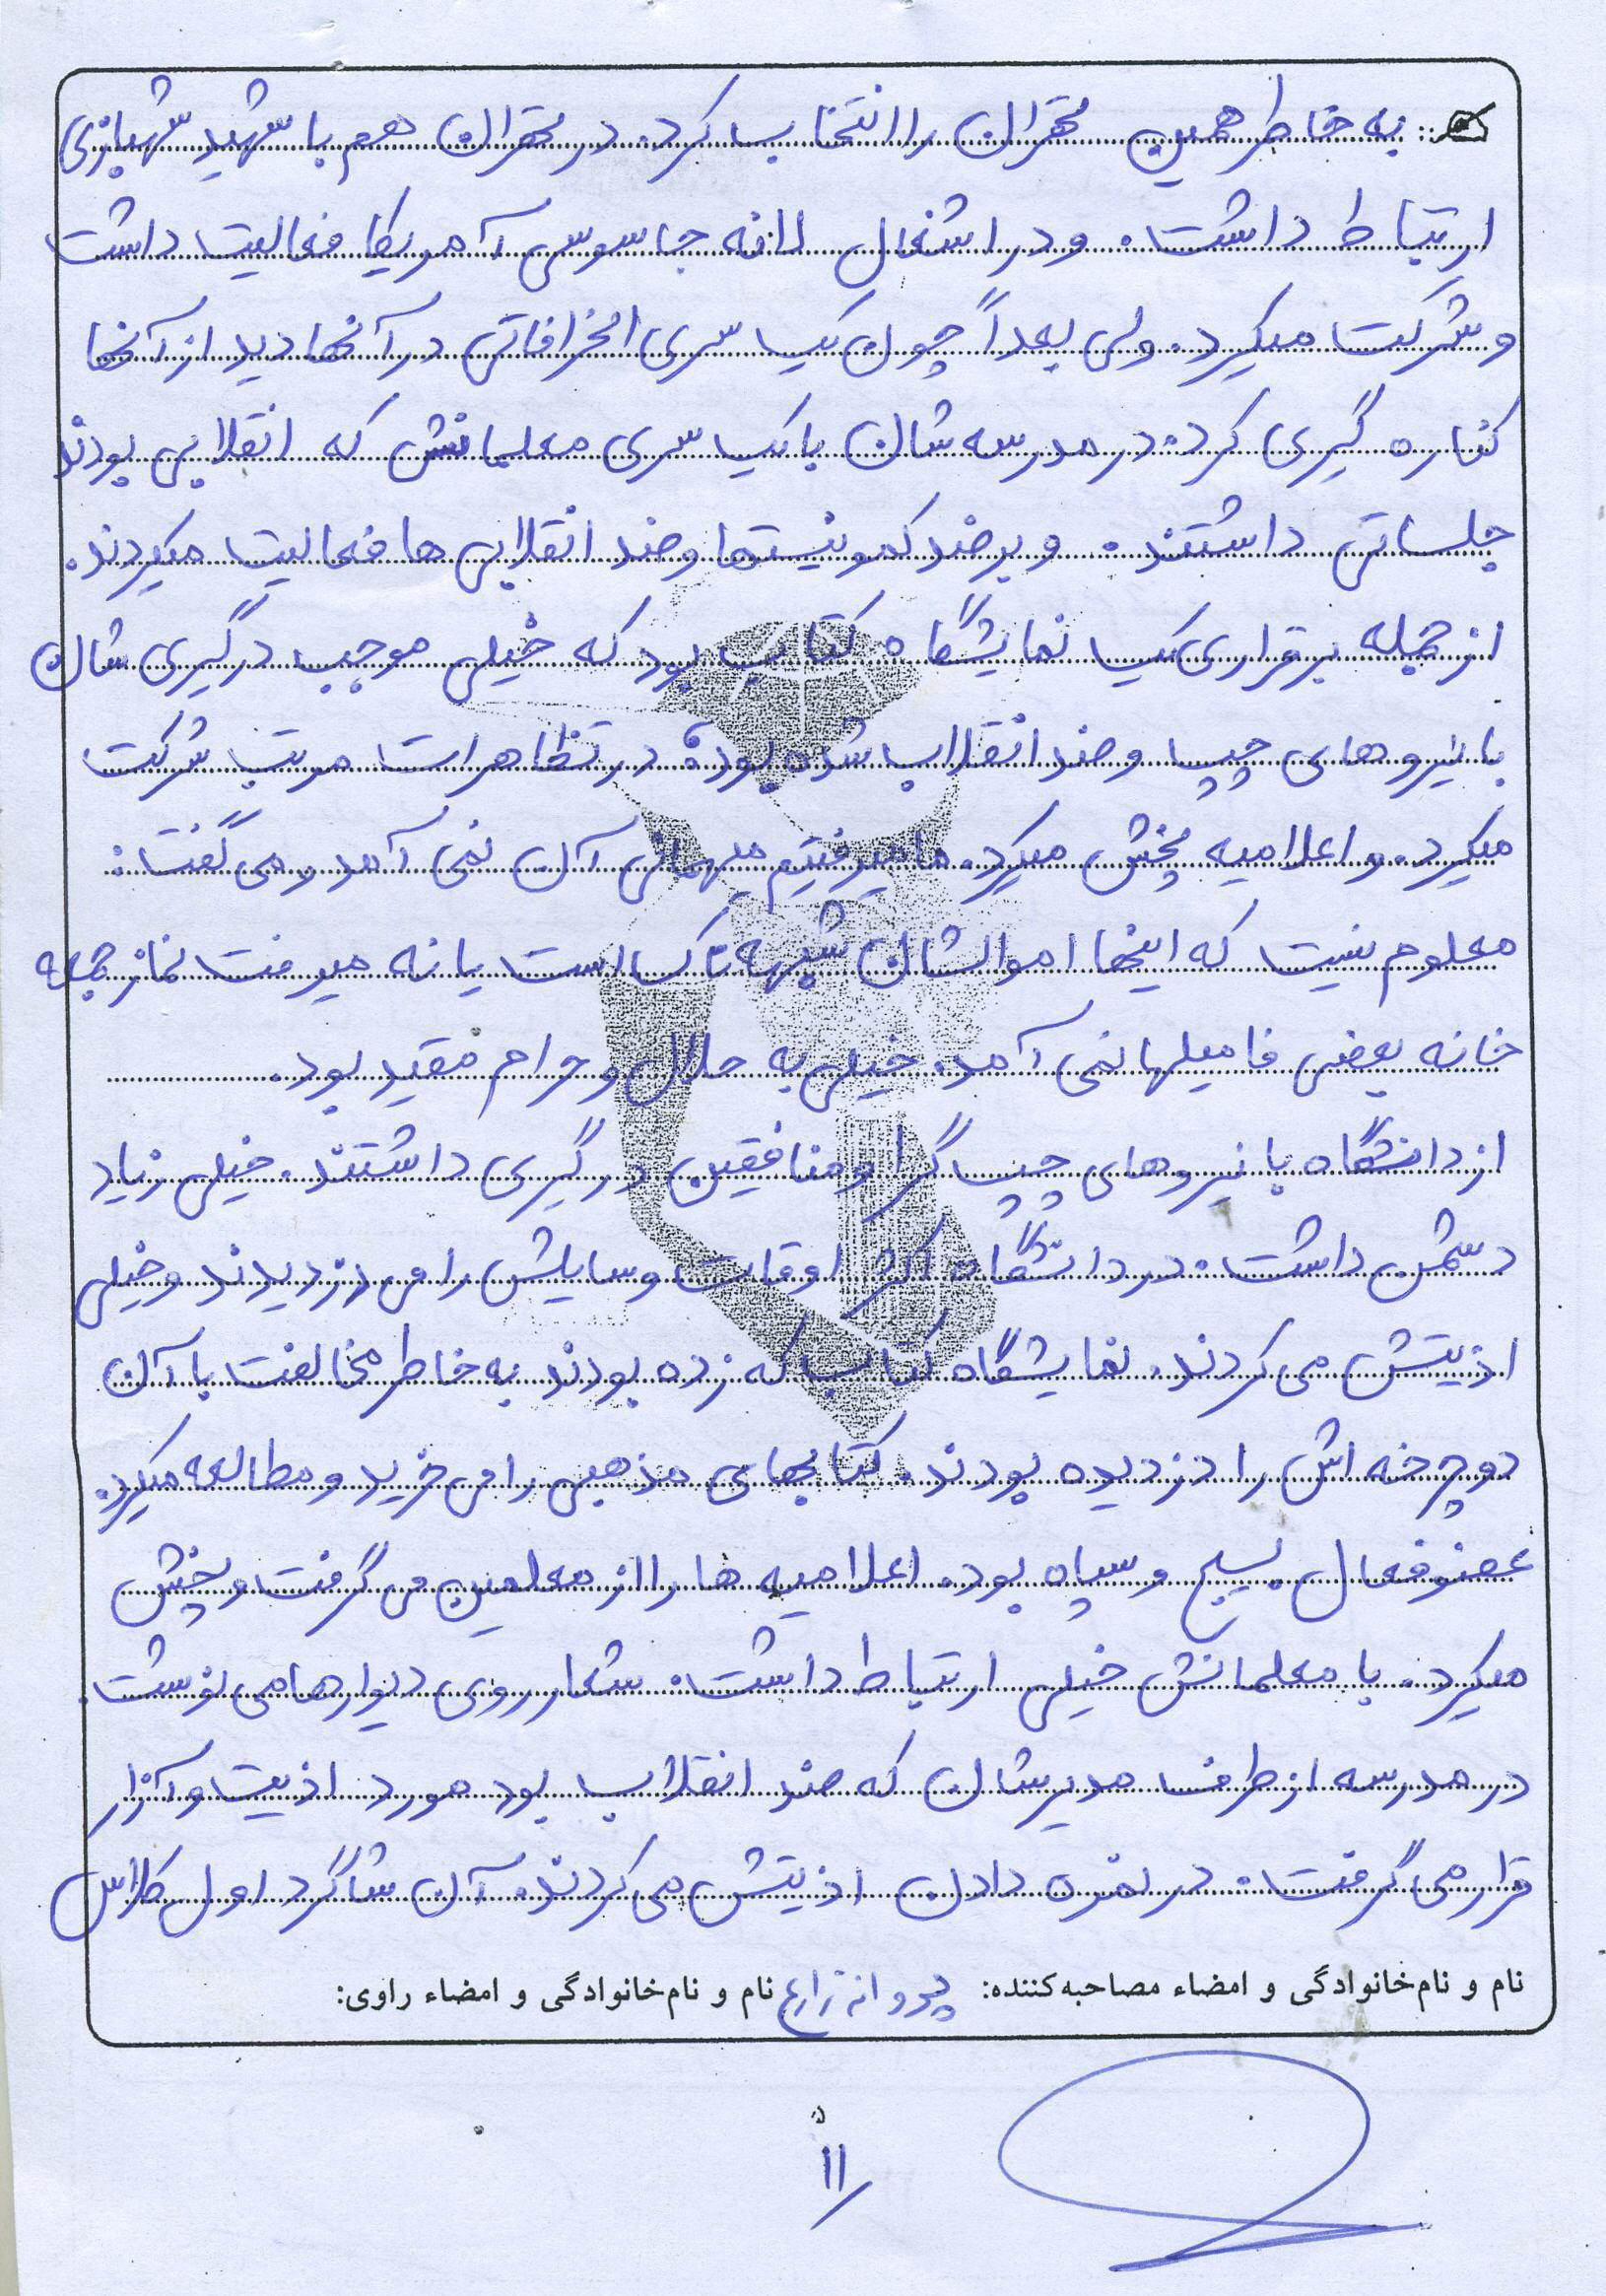 به خاطر همین تهران را انتخاب کرد. در تهران هم با شهید شهبازی
ارتباط داشت. و در اشغال لانه جاسوسی آمریکا فعالیت داشت
و شرکت میکرد. ولی بعداً چون یک سری انحرافاتی در آنها دید از آنها
کناره گیری کرد. در مدرسه شان با یک سری معلمانش که انقلابی بودند
جلساتی داشتند. و بر ضد کمونیستها و ضد انقلابی ها فعالیت میکردند.
از جمله برقراری یک نمایشگاه کتاب بود که خیلی موجب درگیری شان
با نیروهای چپ و ضد انقلاب شده بود. در تظاهرات مرتب شرکت
میکرد. و اعلامیه پخش میکرد. ما میرفتیم میهمانی آن نمی آمد و می گفت:
معلوم نیست که اینها اموالشان شبهه ناک است یا نه میرفت نماز جمعه
خانه بعضی فامیلها نمی آمد. خیلی به حلال و حرام مقید بود.
از دانشگاه با نیروهای چپ گرا و منافقین درگیری داشتند. خیلی زیاد
دشمن داشت. در دانشگاه اکثر اوقات وسایلش را می دزدیدند و خیلی
اذیتش می کردند. نمایشگاه کتاب که زده بودند به خاطر مخالفت با آن
دوچرخه اش را دزدیده بودند. کتابهای مذهبی را می خرید و مطالعه میکرد.
عضو فعال بسیج و سپاه بود. اعلامیه ها را از معلمین می گرفت و پخش
میکرد. با معلمانش خیلی ارتباط داشت. شعار روی دیوارها می نوشت.
در مدرسه از طرف مدیرشان که ضد انقلاب بود مورد اذیت و آزار
قرار می گرفت. در نمره دادن اذیتش می کردند. آن شاگرد اول کلاس
نام و نام‌خانوادگی و امضاء مصاحبه‌کننده: پروانه زارع نام و نام‌خانوادگی و امضاء راوی:
۵
۱۱